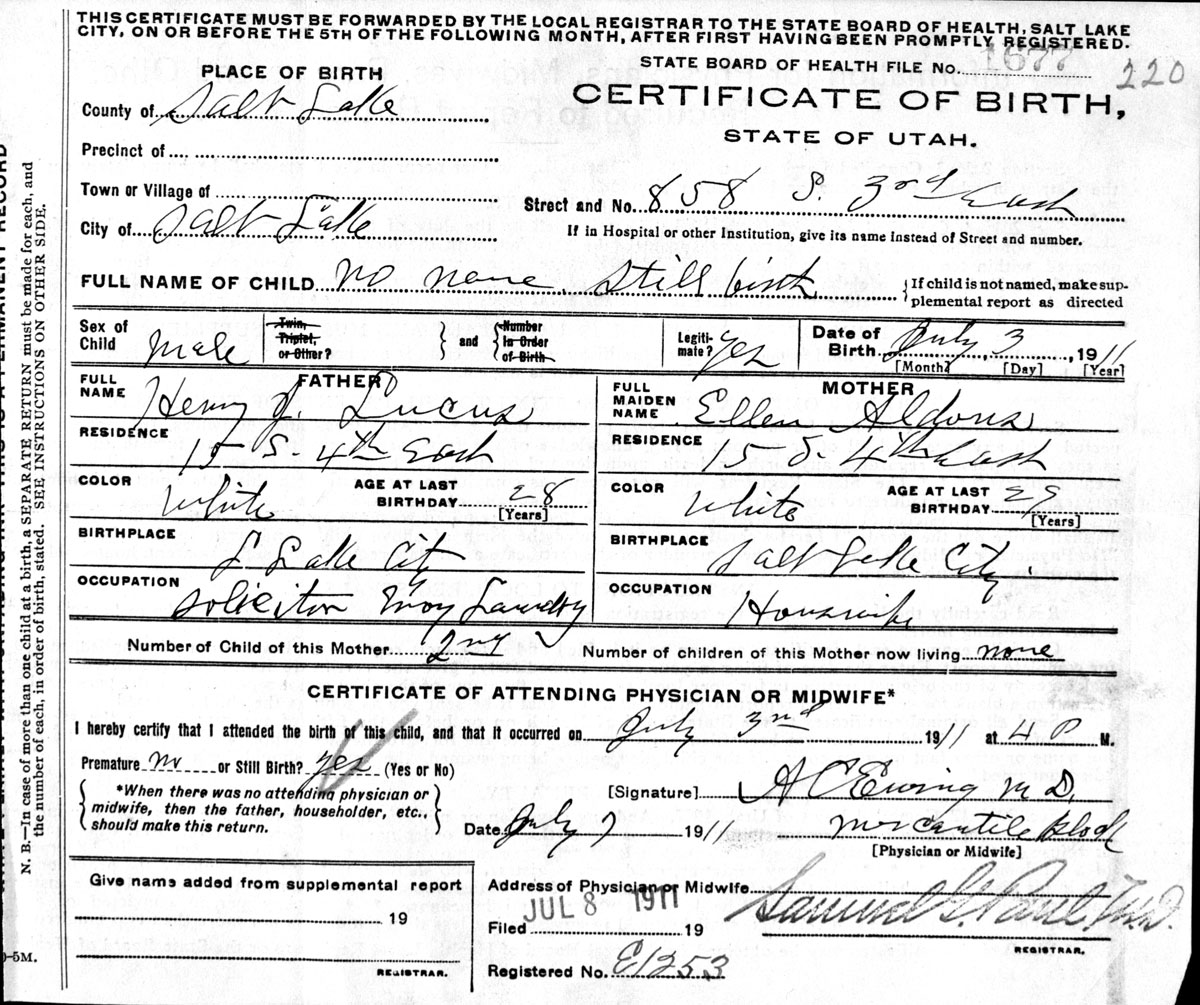 THIS CERTIFICATE MUST BE FORWARDED BY THE LOCAL REGISTRAR TO THE STATE BOARD OF HEALTH, SALT LAKE
CITY, ON OR BEFORE THE 5TH OF THE FOLLOWING MONTH, AFTER FIRST HAVING BEEN PROMPTLY REGISTERED.
STATE BOARD OF HEALTH FILE No. 1677
220
PLACE OF BIRTH
CERTIFICATE OF BIRTH,
STATE OF UTAH.
County of Salt Lake
Precinct of
Town or Village of
Street and No. 858 S. 3rd East
City of Salt Lake
If in Hospital or other Institution, give its name instead of Street and number.
FULL NAME OF CHILD No name Still birth
If child is not named, make sup-
plemental report as directed
Sex of Child Male
Twin, Triplet, or Other?
and
Number In Order of Birth
Legiti-mate? Yes
Date of Birth July 3, 1911
[Month] [Day] [Year]
FATHER
FULL NAME Henry J. Lucus
MOTHER
FULL MAIDEN NAME Ellen Aldous
RESIDENCE 15 S. 4th East
RESIDENCE 15 S. 4th East
COLOR White AGE AT LAST BIRTHDAY 28 [Years]
COLOR White AGE AT LAST BIRTHDAY 29 [Years]
BIRTHPLACE S Lake City
BIRTHPLACE Salt Lake City.
OCCUPATION Solicitor Troy Laundry
OCCUPATION Housewife
Number of Child of this Mother 2nd
Number of children of this Mother now living none
CERTIFICATE OF ATTENDING PHYSICIAN OR MIDWIFE*
I hereby certify that I attended the birth of this child, and that it occurred on July 3rd 1911 at 4 P M.
Premature No or Still Birth? Yes (Yes or No)
*When there was no attending physician or
midwife, then the father, householder, etc.,
should make this return.
[Signature] A C Ewing M D.
Date July 7 1911 Mercantile Block
[Physician or Midwife]
Give name added from supplemental report
19
REGISTRAR.
Address of Physician or Midwife
JUL 8 1911
Filed 19
Samuel G. Paul M.D.
REGISTRAR.
Registered No. E1253
N. B.—In case of more than one child at a birth, a SEPARATE RETURN must be made for each, and
the number of each, in order of birth, stated. SEE INSTRUCTIONS ON OTHER SIDE.
-5M.